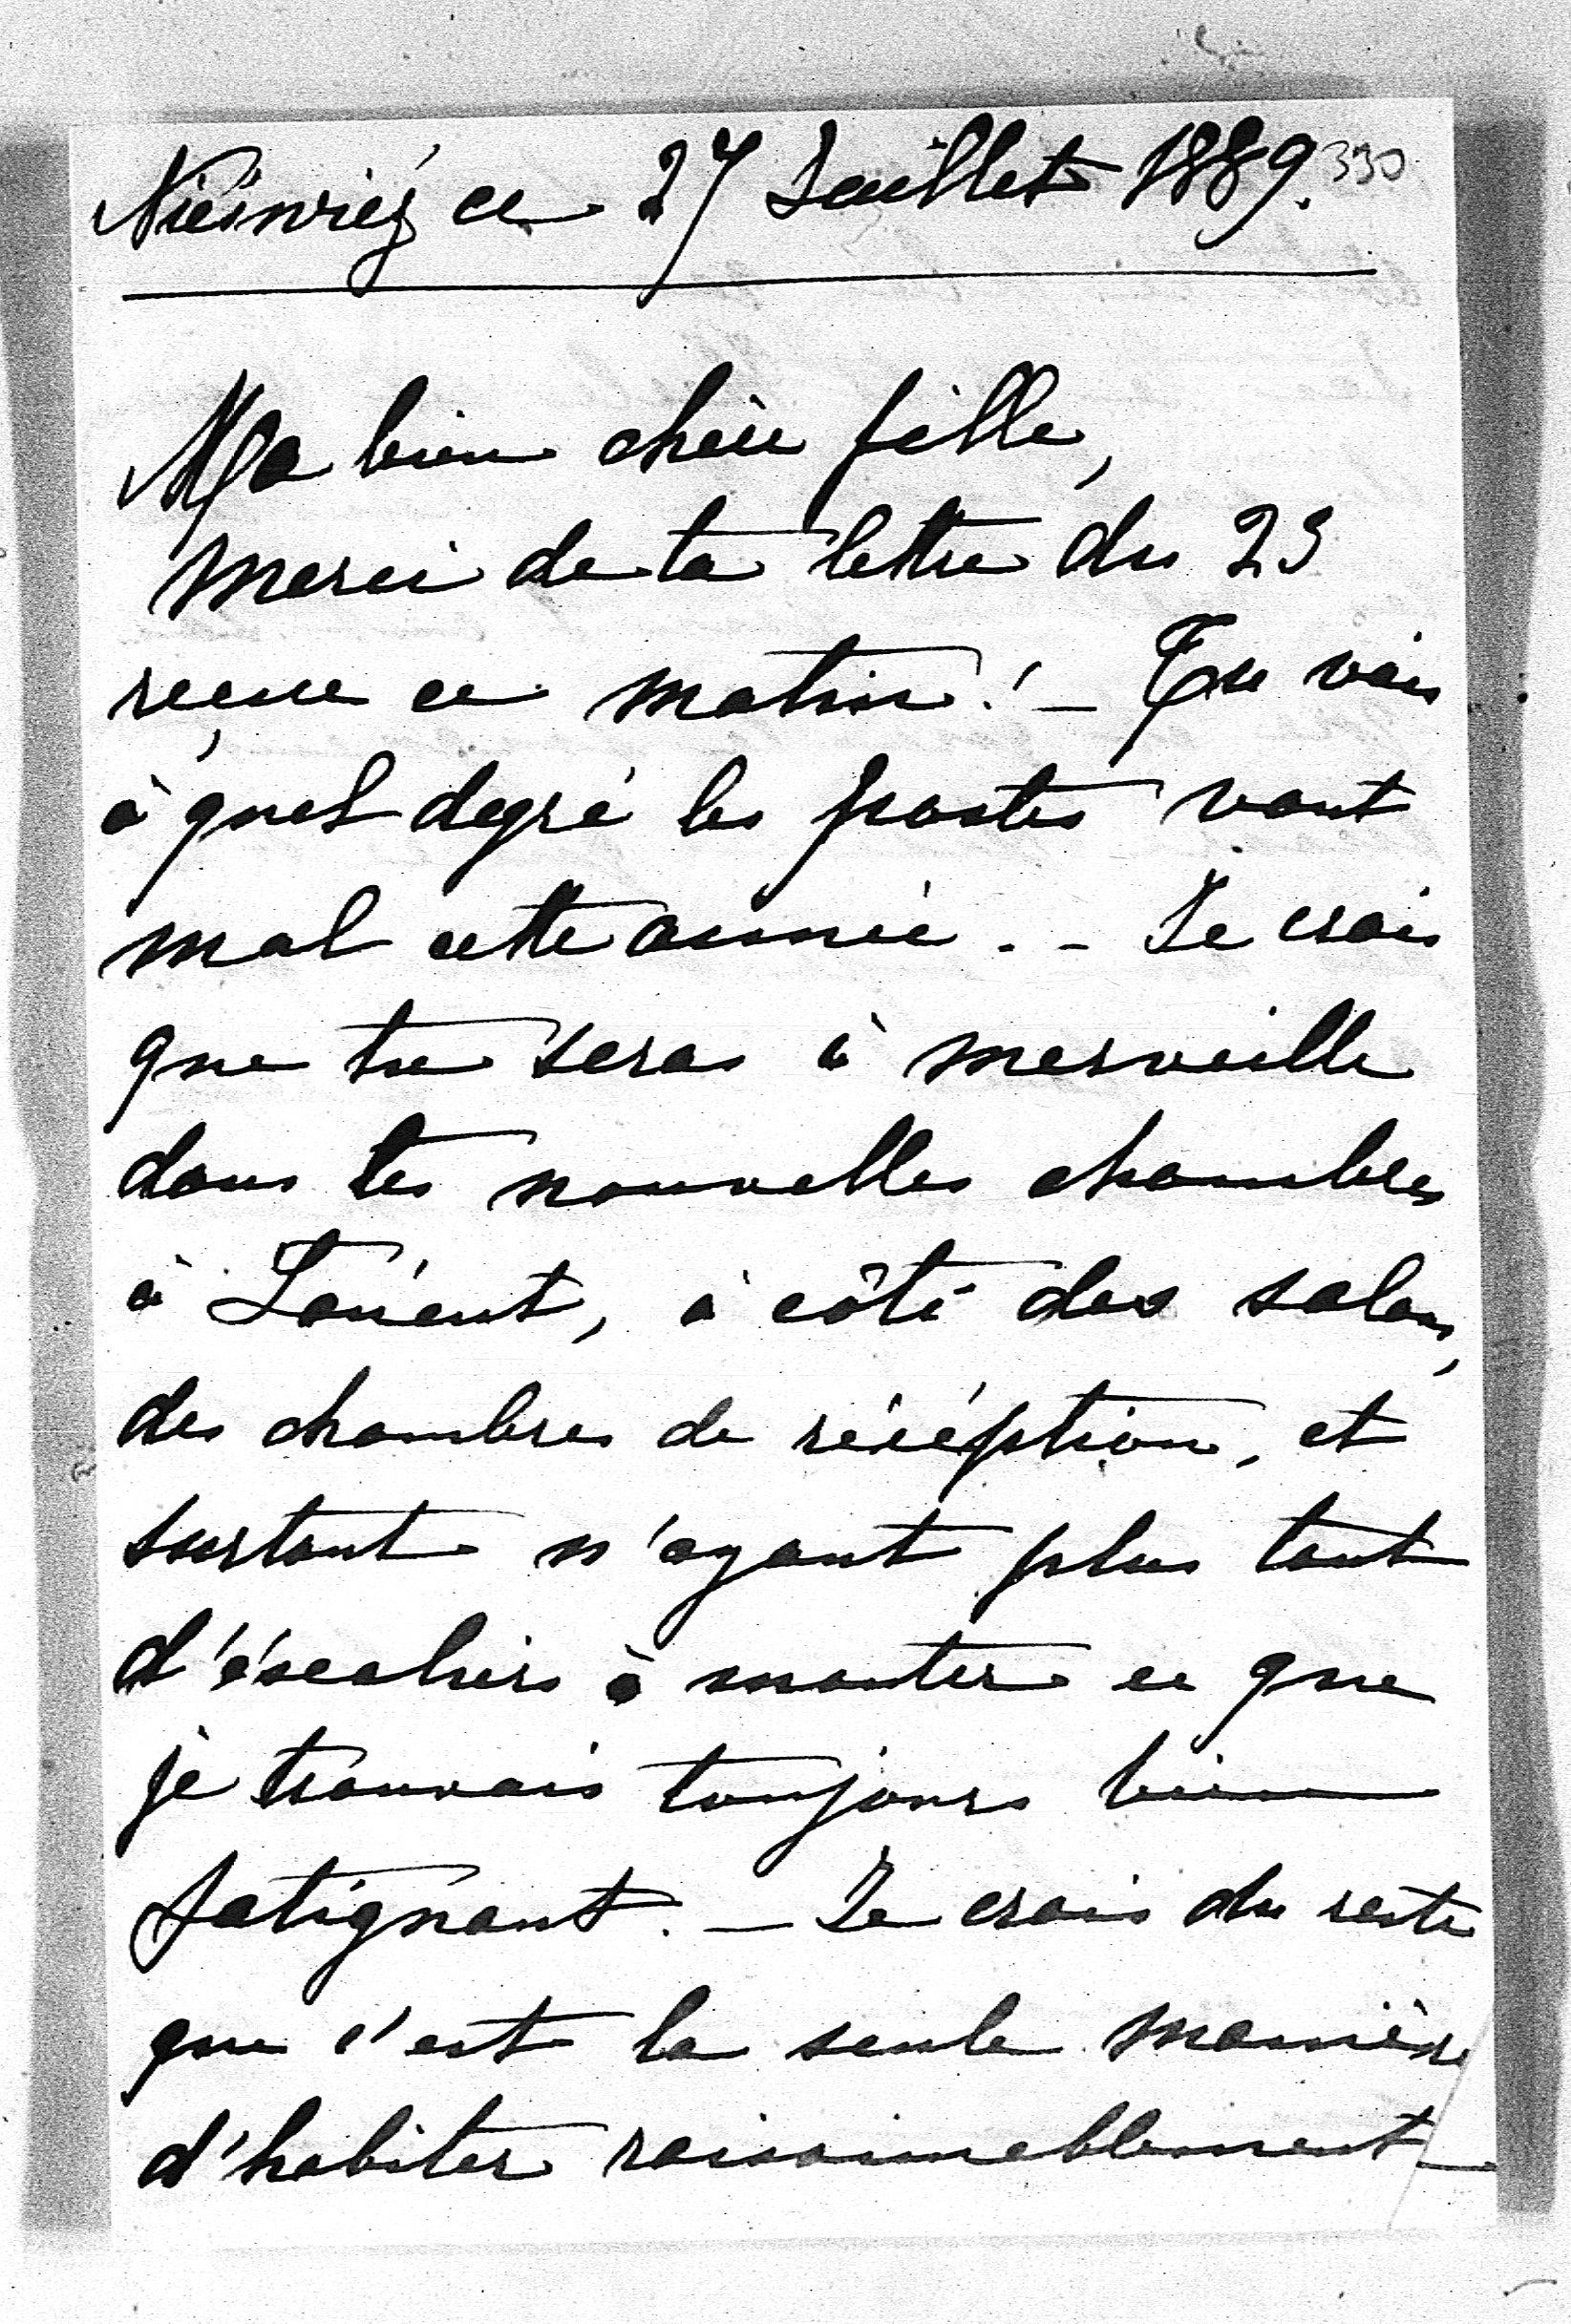 Nieświéz ce 27 Juillet 1889. 330
Ma bien chère fille,
merci de ta lettre du 23
reçue ce matin! — Tu vois
à quel degré les postes vont
mal cette année. — Je crois
que tu seras à merveille
dans tes nouvelles chambres
à Łańcut, à côté des salons,
des chambres de récéption, et
surtout n'ayant plus tant
d'éscaliers à monter ce que
je trouvais toujours bien
fatignant. — Je crois du reste
que c'est la seule manière
d'habiter raisonnablement